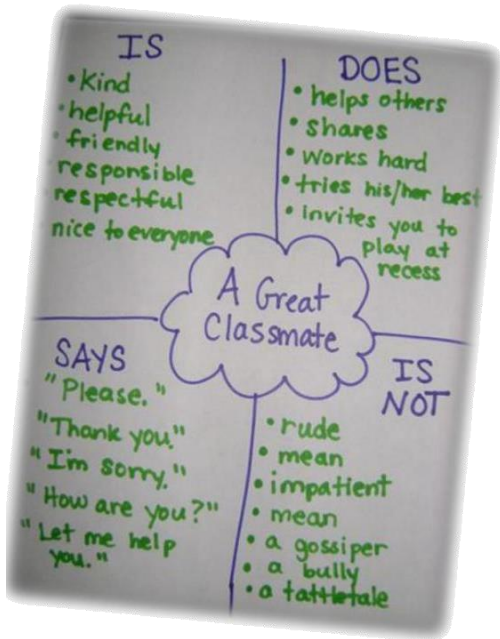 IS
• Kind
• helpful
• friendly
responsible
respectful
nice to everyone
DOES
• helps others
• Shares
• Works hard
• tries his/her best
• invites you to
play at
recess
A Great
Classmate
SAYS
"Please."
"Thank you."
"I'm sorry."
"How are you?"
"Let me help
you."
IS
NOT
• rude
• mean
• impatient
• mean
• a gossiper
• a bully
• a tattletale